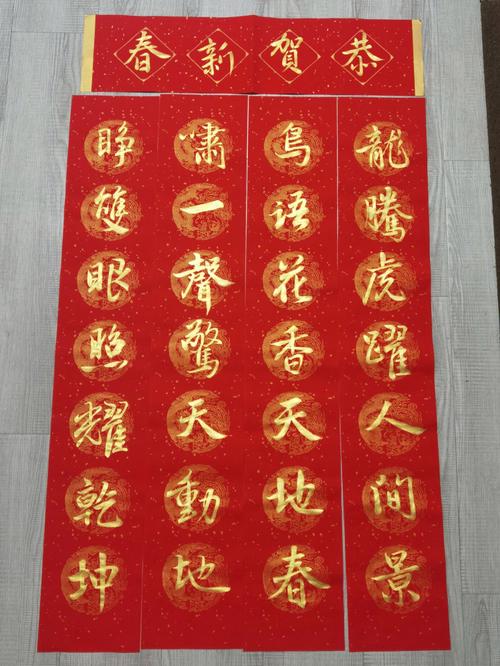 恭賀新春
龍騰虎躍人間景
鳥語花香天地春
嘯一聲驚天動地
睜雙眼照耀乾坤